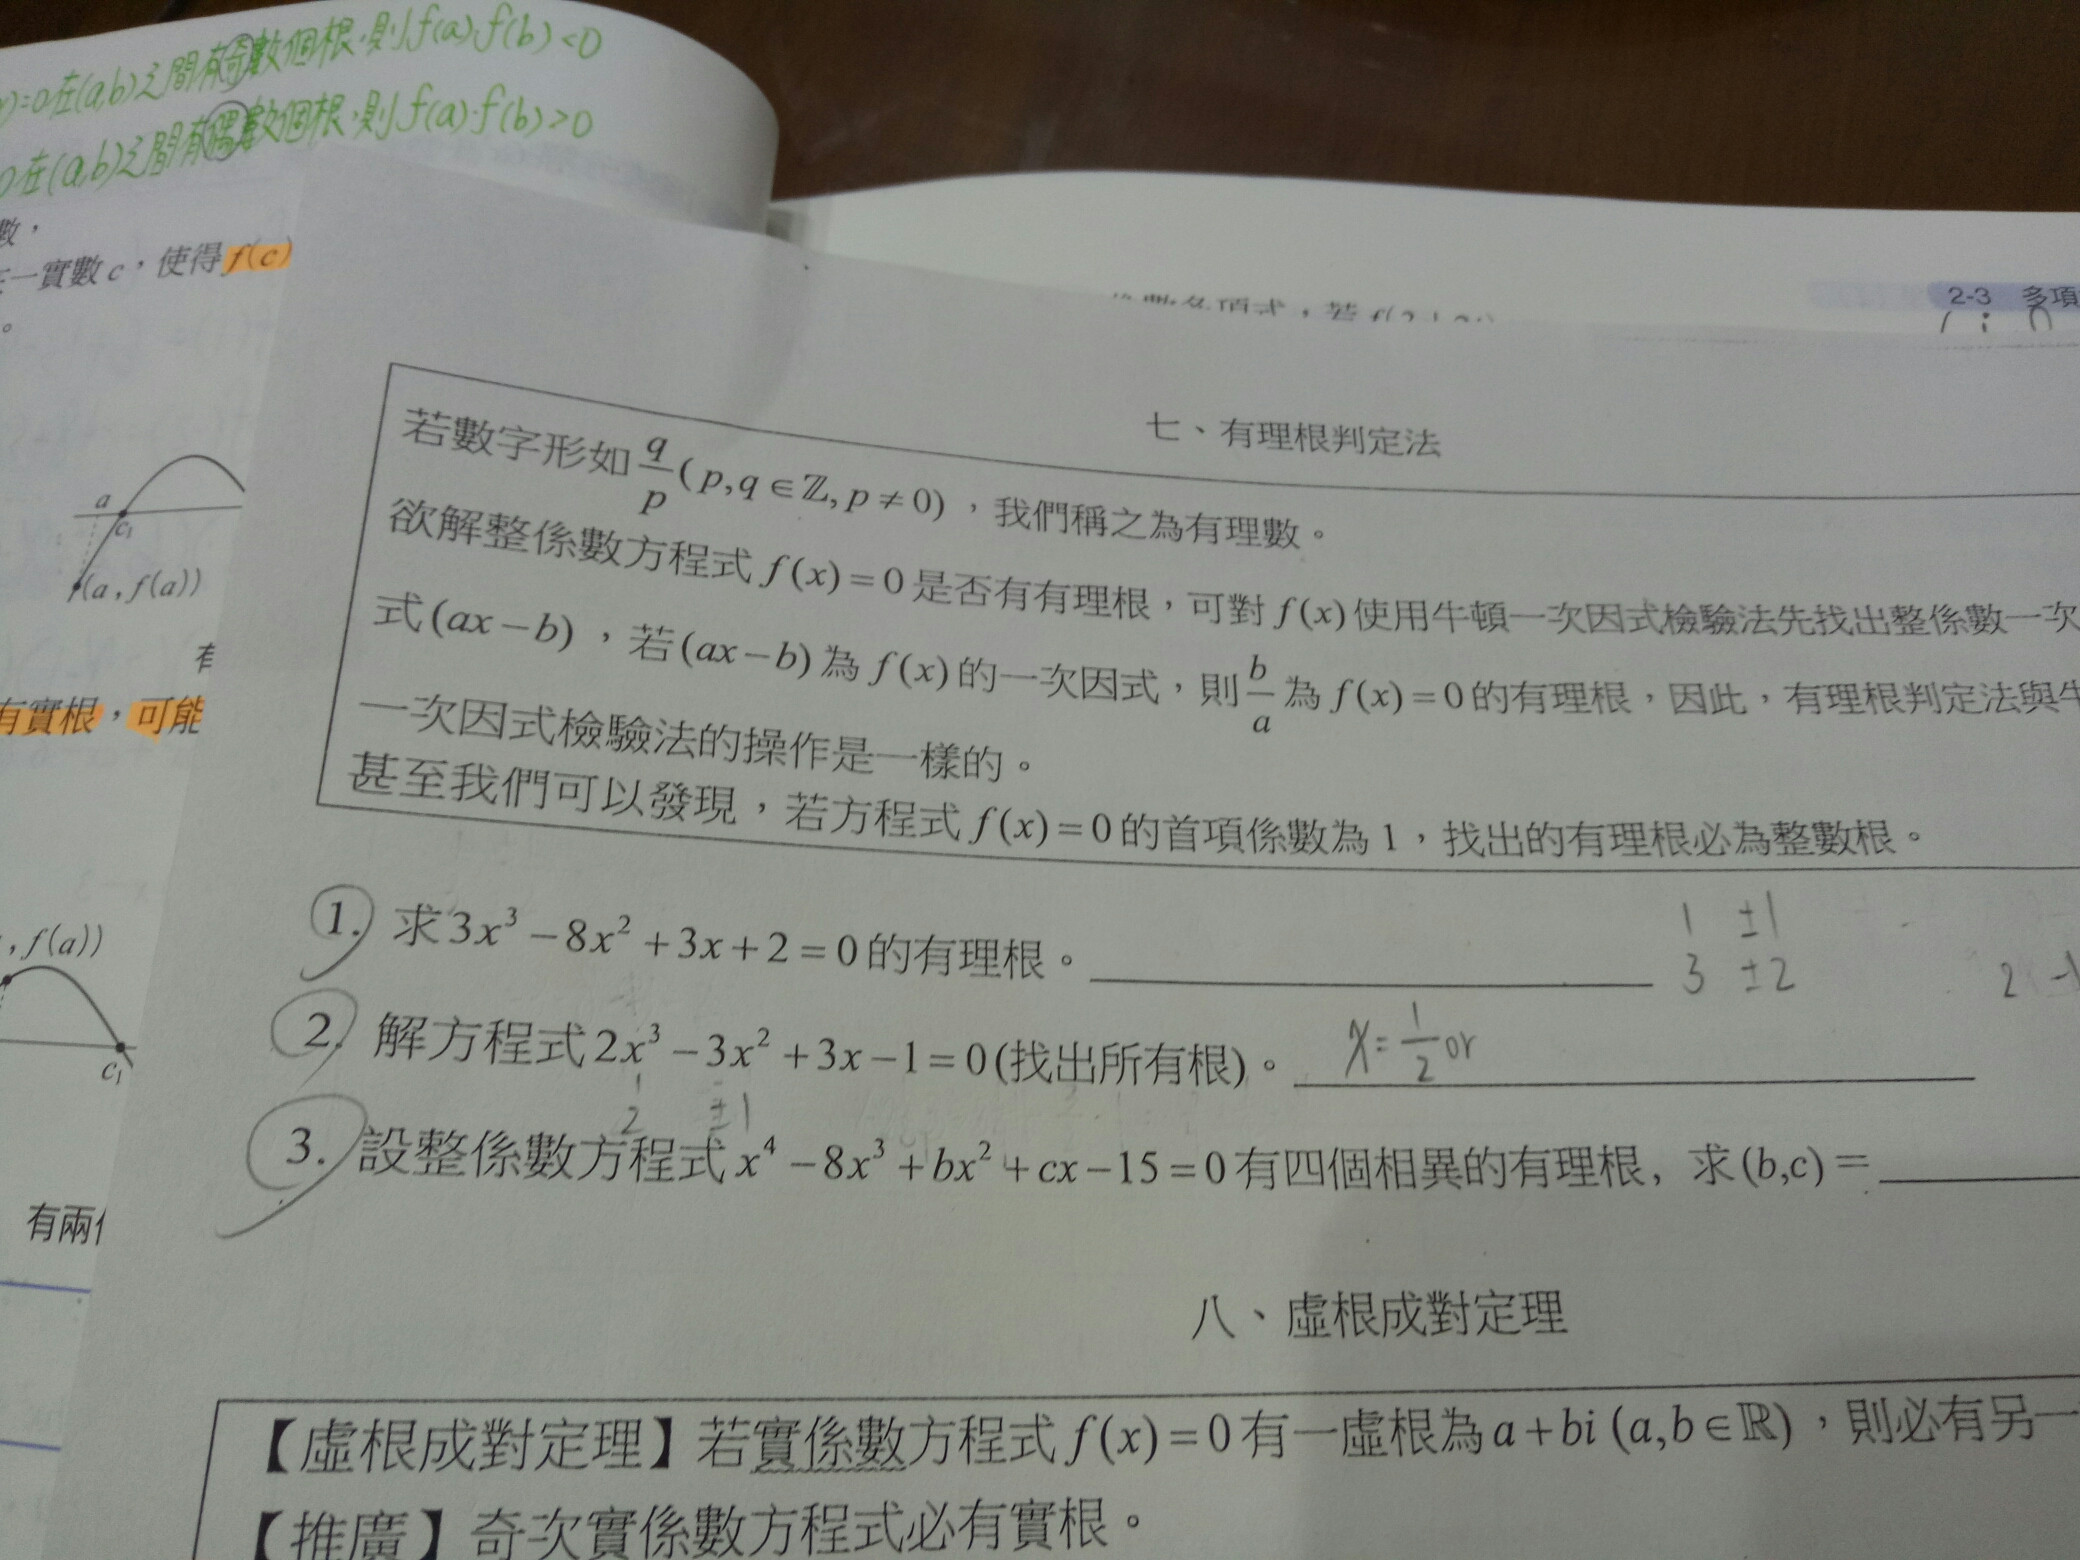 =0在(a,b)之間有奇數個根,則f(a)·f(b)<0
0在(a,b)之間有偶數個根,則f(a)·f(b)>0
數，
一實數c，使得f(c)
。
a
c₁
(a,f(a))
有
有實根，可能
,f(a))
c₁
有兩
2-3 多項
七、有理根判定法
若數字形如 q/p (p,q∈ℤ,p≠0)，我們稱之為有理數。
欲解整係數方程式 f(x)=0 是否有有理根，可對 f(x) 使用牛頓一次因式檢驗法先找出整係數一次
式(ax−b)，若(ax−b)為 f(x) 的一次因式，則 b/a 為 f(x)=0 的有理根，因此，有理根判定法與牛
一次因式檢驗法的操作是一樣的。
甚至我們可以發現，若方程式 f(x)=0 的首項係數為 1，找出的有理根必為整數根。
1. 求 3x³−8x²+3x+2=0 的有理根。
1 ±1
3 ±2
2 -1
2. 解方程式 2x³−3x²+3x−1=0 (找出所有根)。 x=1/2 or
1
2 ±1
3. 設整係數方程式 x⁴−8x³+bx²+cx−15=0 有四個相異的有理根, 求(b,c)=
八、虛根成對定理
【虛根成對定理】若實係數方程式 f(x)=0 有一虛根為 a+bi (a,b∈ℝ)，則必有另一
【推廣】奇次實係數方程式必有實根。